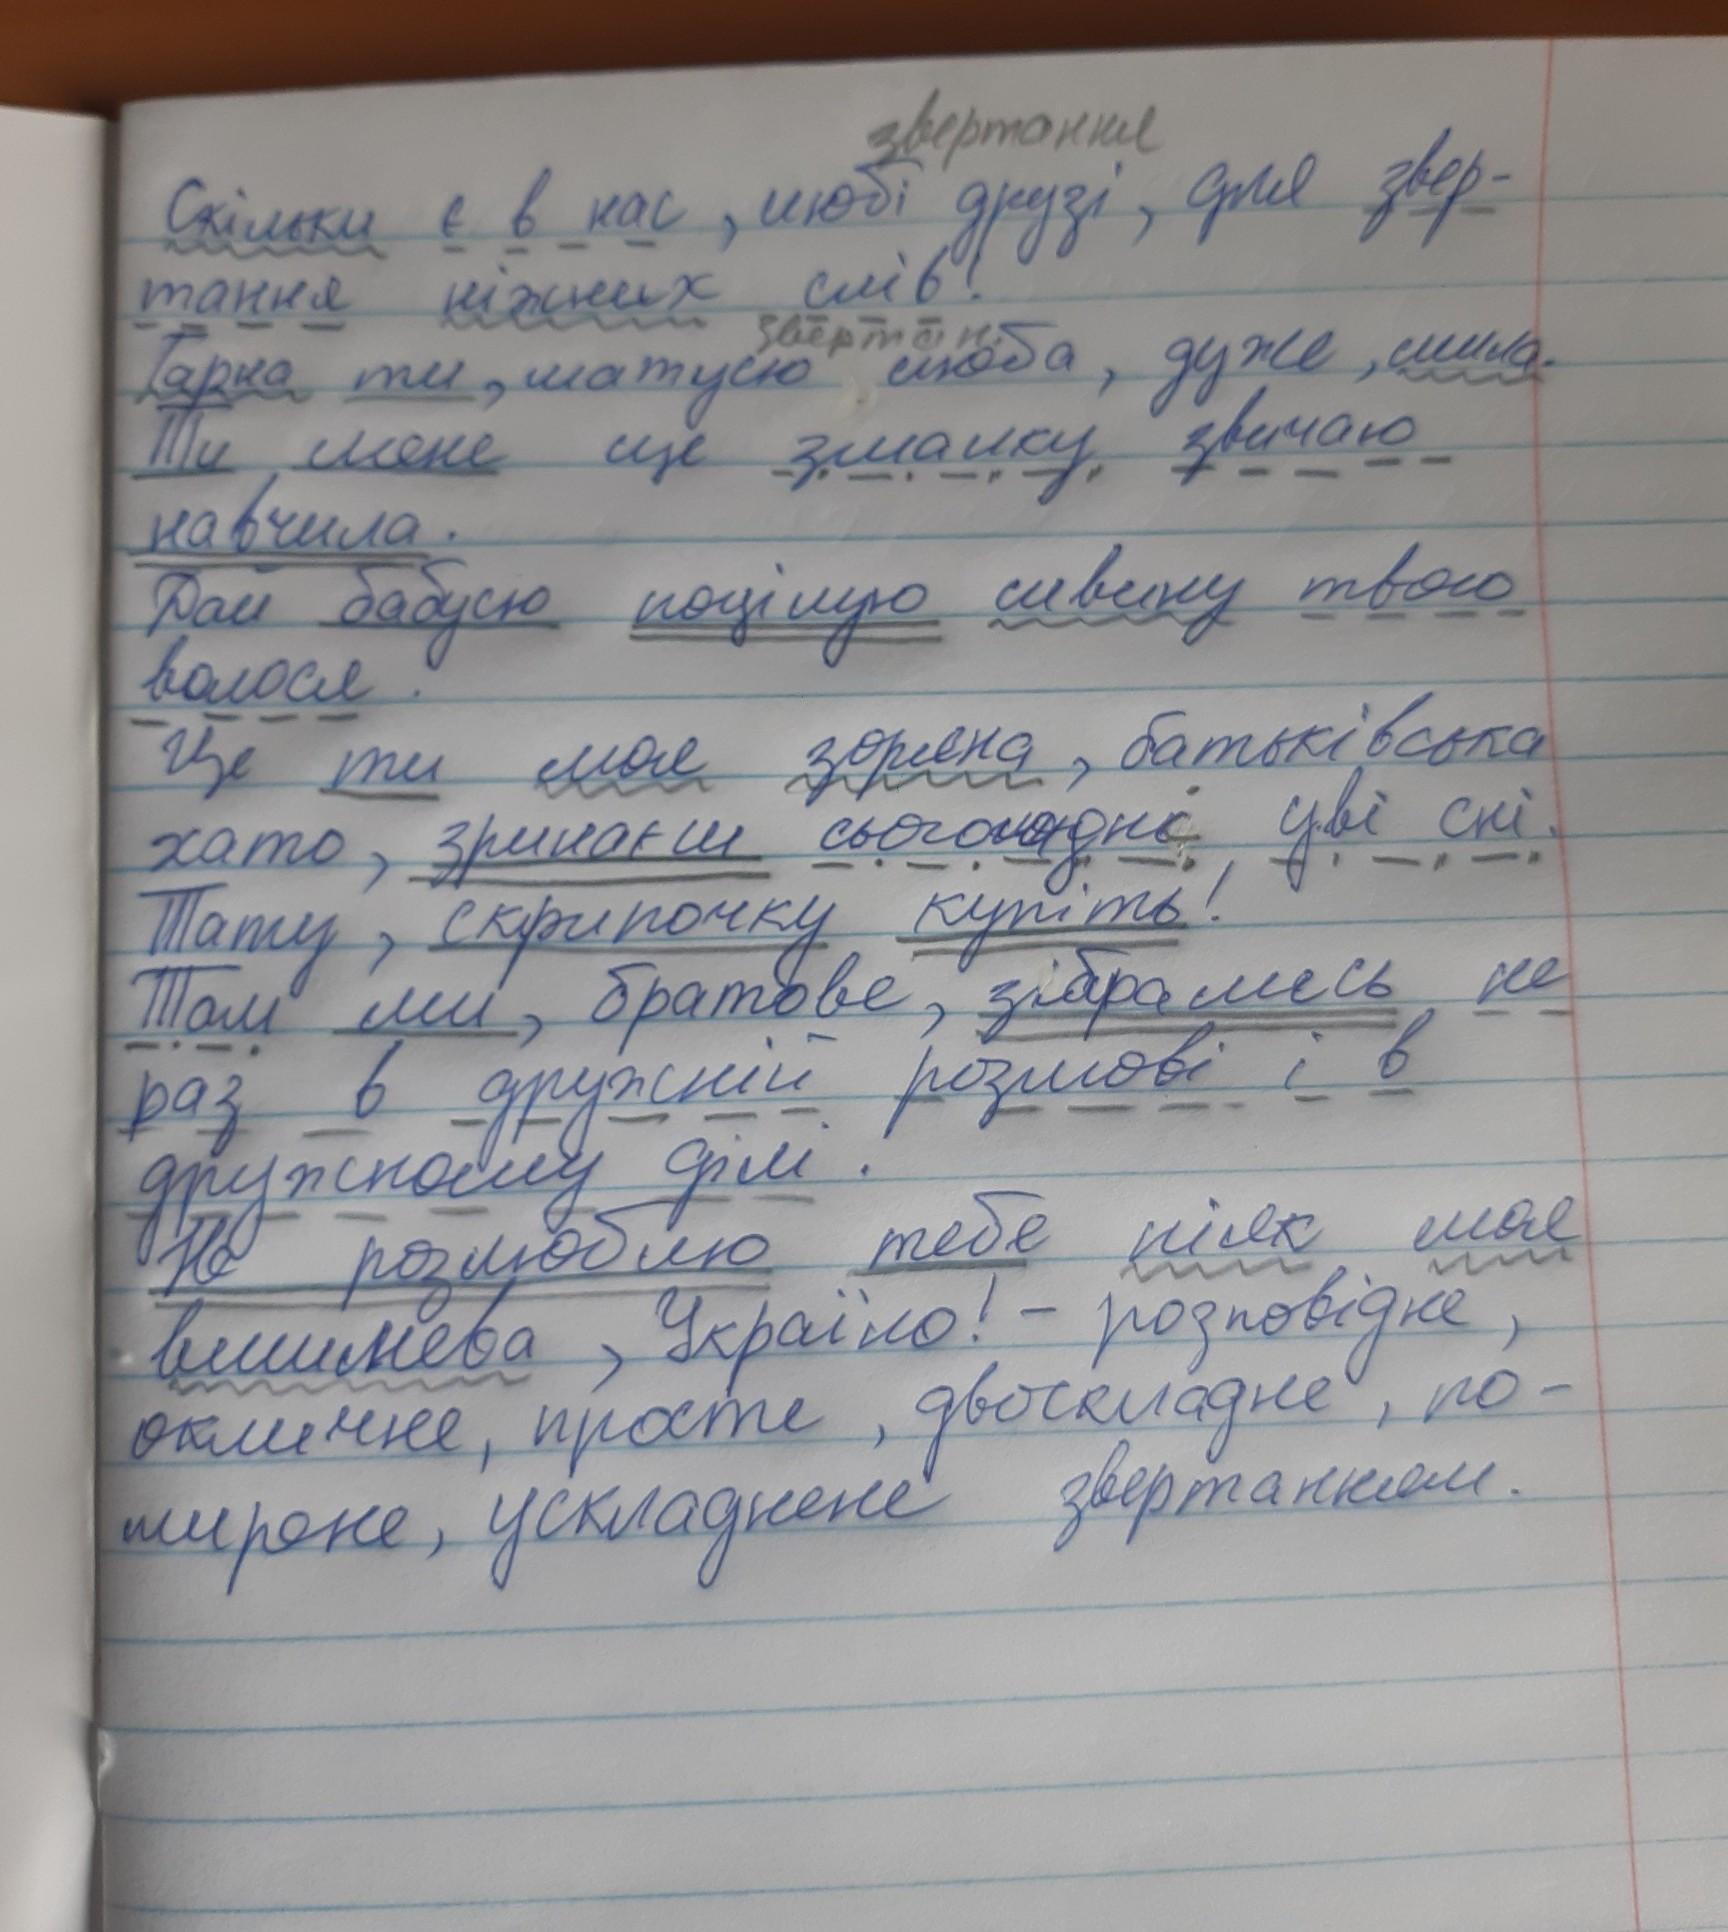 звертання
Скільки є в нас, любі друзі, для звер-
тання ніжних слів!
звертан.
Гарна ти, матусю люба, дуже, мила.
Ти мене ще змалку звичаю
навчила.
Дай бабусю поцілую сивину твого
волося.
Це ти моя зоряна, батьківська
хато, зринаєш сьогодні, уві сні.
Тату, скрипочку купіть!
Там ми, братове, зібрались не
раз в дружній розмові і в
дружному ділі.
Не розлюблю тебе ніяк моя
вишнева, Україно! - розповідне,
окличне, просте, двоскладне, по-
ширене, ускладнене звертанням.